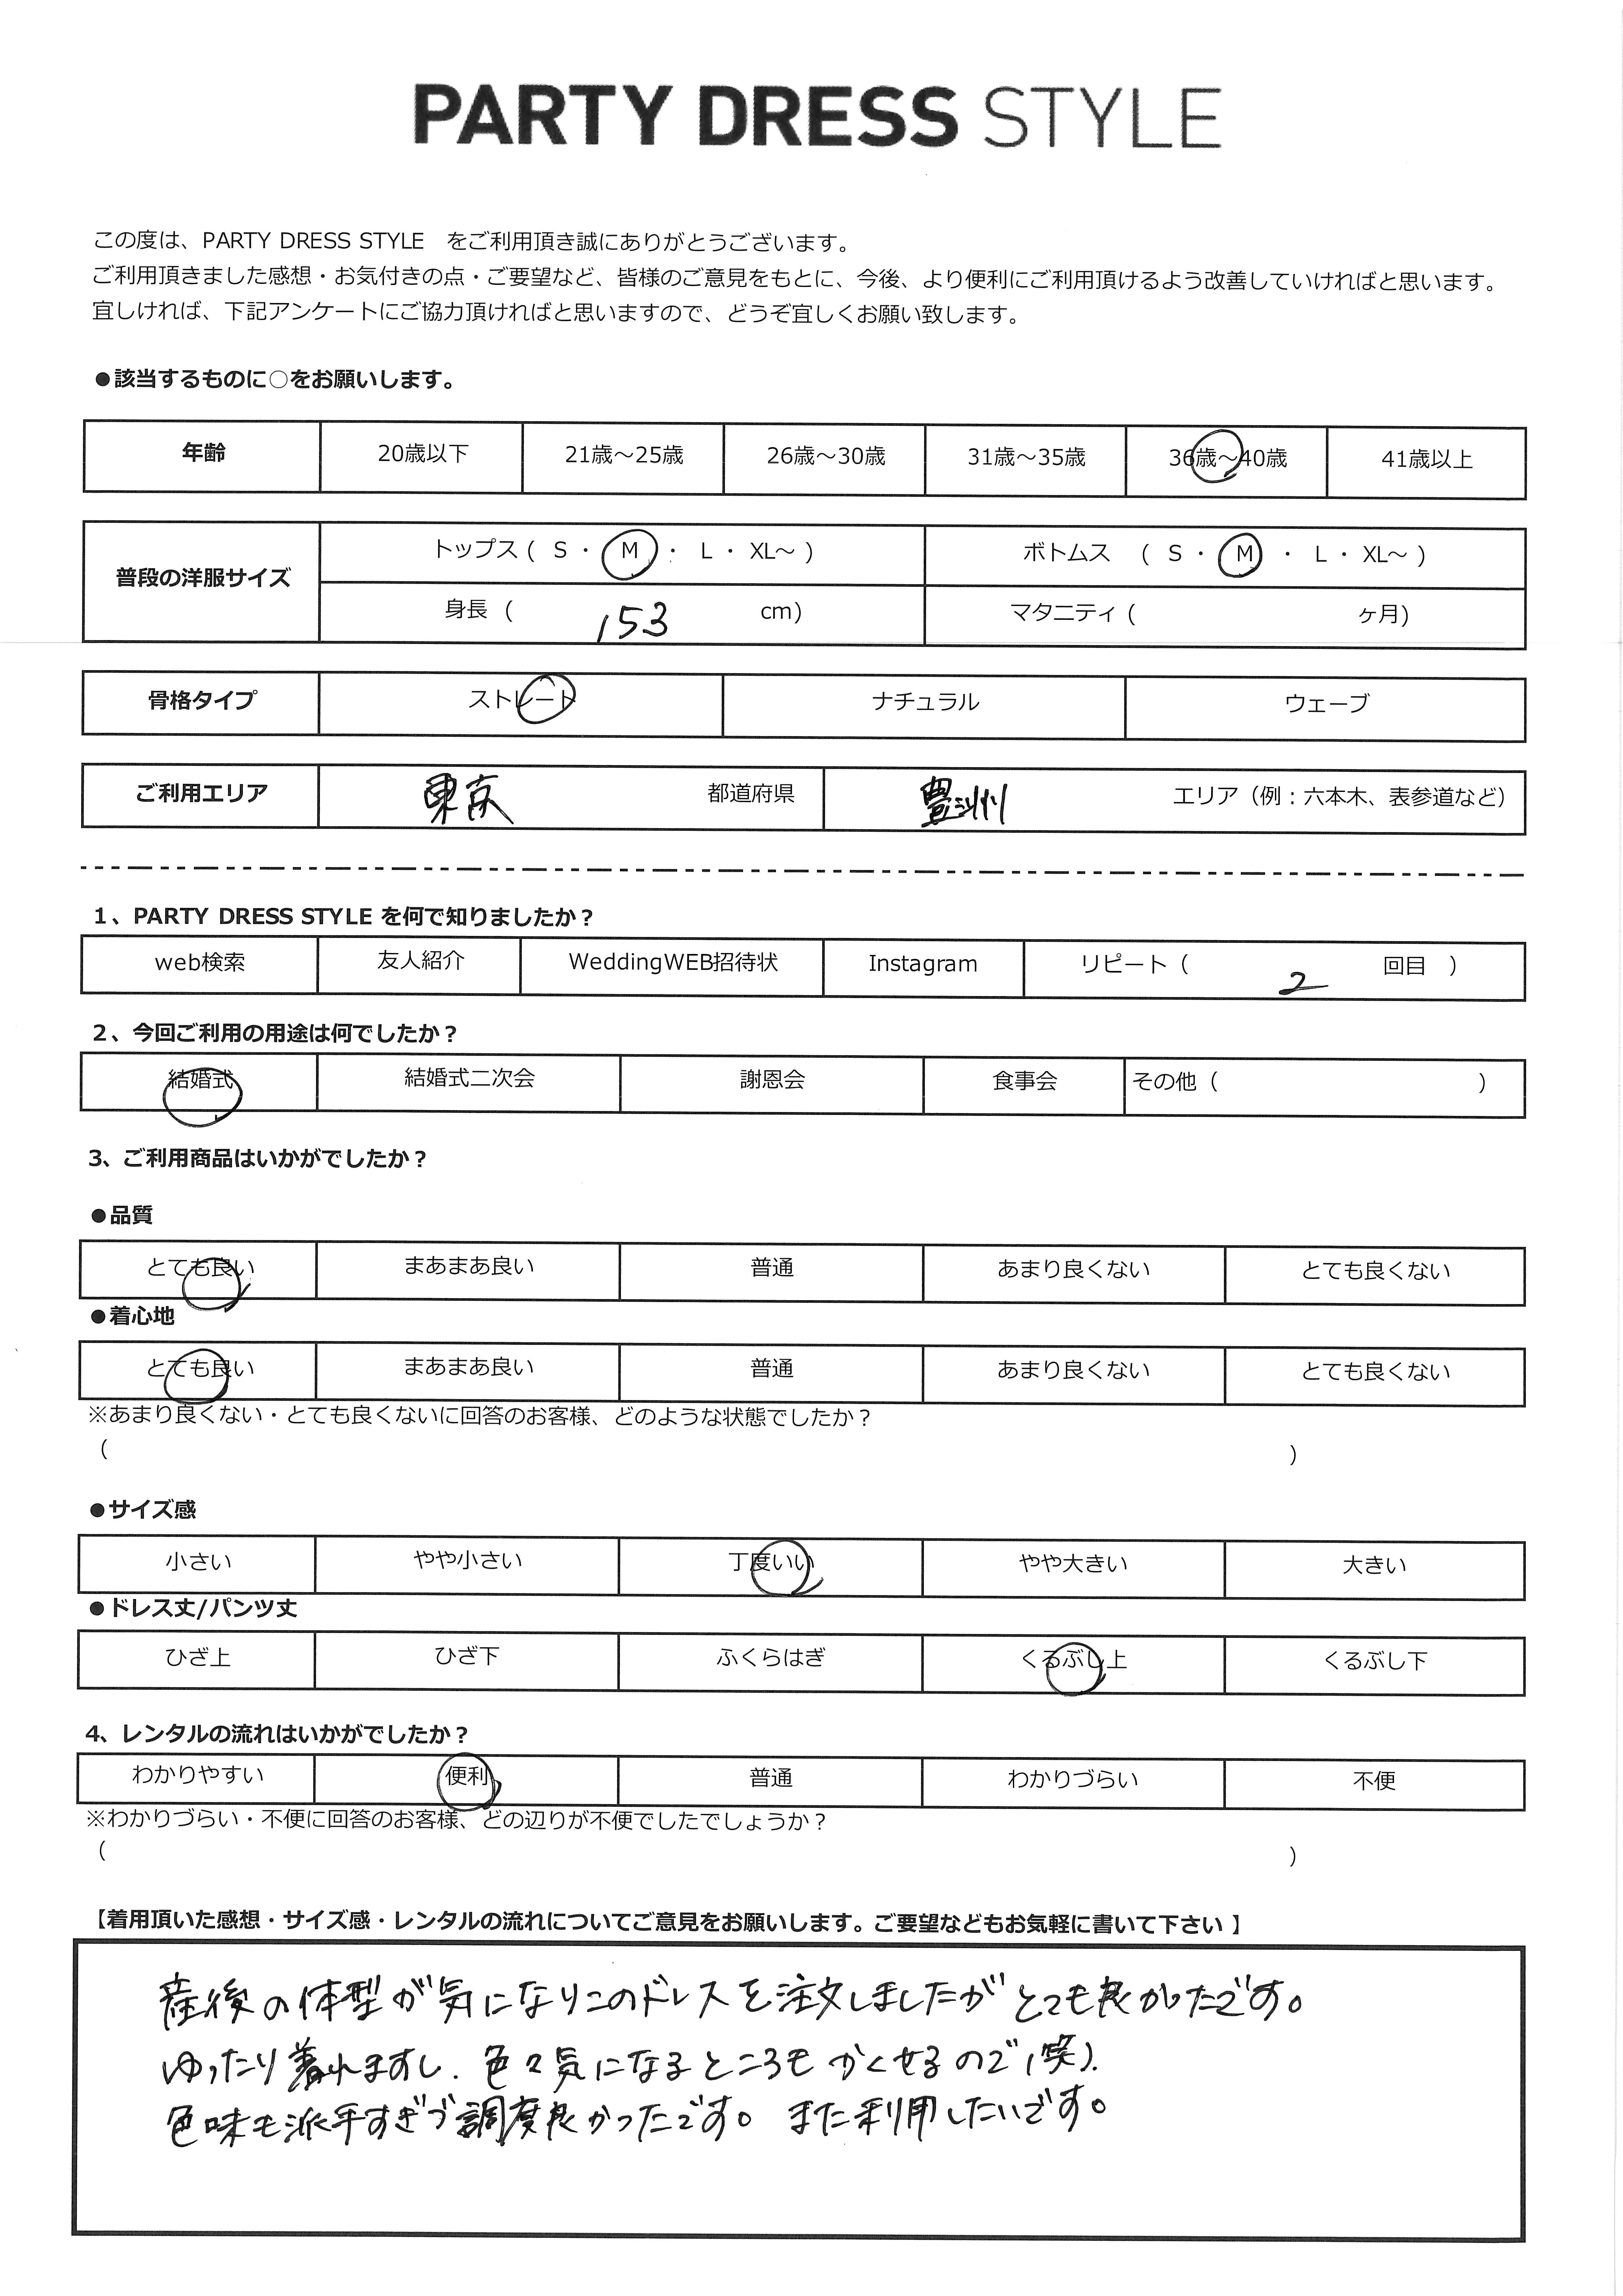 PARTY DRESS STYLE
この度は、PARTY DRESS STYLE　をご利用頂き誠にありがとうございます。
ご利用頂きました感想・お気付きの点・ご要望など、皆様のご意見をもとに、今後、より便利にご利用頂けるよう改善していければと思います。
宜しければ、下記アンケートにご協力頂ければと思いますので、どうぞ宜しくお願い致します。
●該当するものに○をお願いします。
年齢 20歳以下 21歳～25歳 26歳～30歳 31歳～35歳 36歳～40歳 41歳以上
普段の洋服サイズ
トップス ( S ・ M ・ L ・ XL～ ) ボトムス ( S ・ M ・ L ・ XL～ )
身長 ( 153 cm) マタニティ ( ヶ月)
骨格タイプ ストレート ナチュラル ウェーブ
ご利用エリア 東京 都道府県 豊洲 エリア（例：六本木、表参道など）
1、PARTY DRESS STYLE を何で知りましたか？
web検索 友人紹介 WeddingWEB招待状 Instagram リピート（ 2 回目 ）
2、今回ご利用の用途は何でしたか？
結婚式 結婚式二次会 謝恩会 食事会 その他（ ）
3、ご利用商品はいかがでしたか？
●品質
とても良い まあまあ良い 普通 あまり良くない とても良くない
●着心地
とても良い まあまあ良い 普通 あまり良くない とても良くない
※あまり良くない・とても良くないに回答のお客様、どのような状態でしたか？
（ ）
●サイズ感
小さい やや小さい 丁度いい やや大きい 大きい
●ドレス丈/パンツ丈
ひざ上 ひざ下 ふくらはぎ くるぶし上 くるぶし下
4、レンタルの流れはいかがでしたか？
わかりやすい 便利 普通 わかりづらい 不便
※わかりづらい・不便に回答のお客様、どの辺りが不便でしたでしょうか？
（ ）
【着用頂いた感想・サイズ感・レンタルの流れについてご意見をお願いします。ご要望などもお気軽に書いて下さい 】
産後の体型が気になりこのドレスを注文しましたがとても良かったです。
ゆったり着れますし、色々気になるところもかくせるので(笑)、
色味も派手すぎづ調度良かったです。また利用したいです。